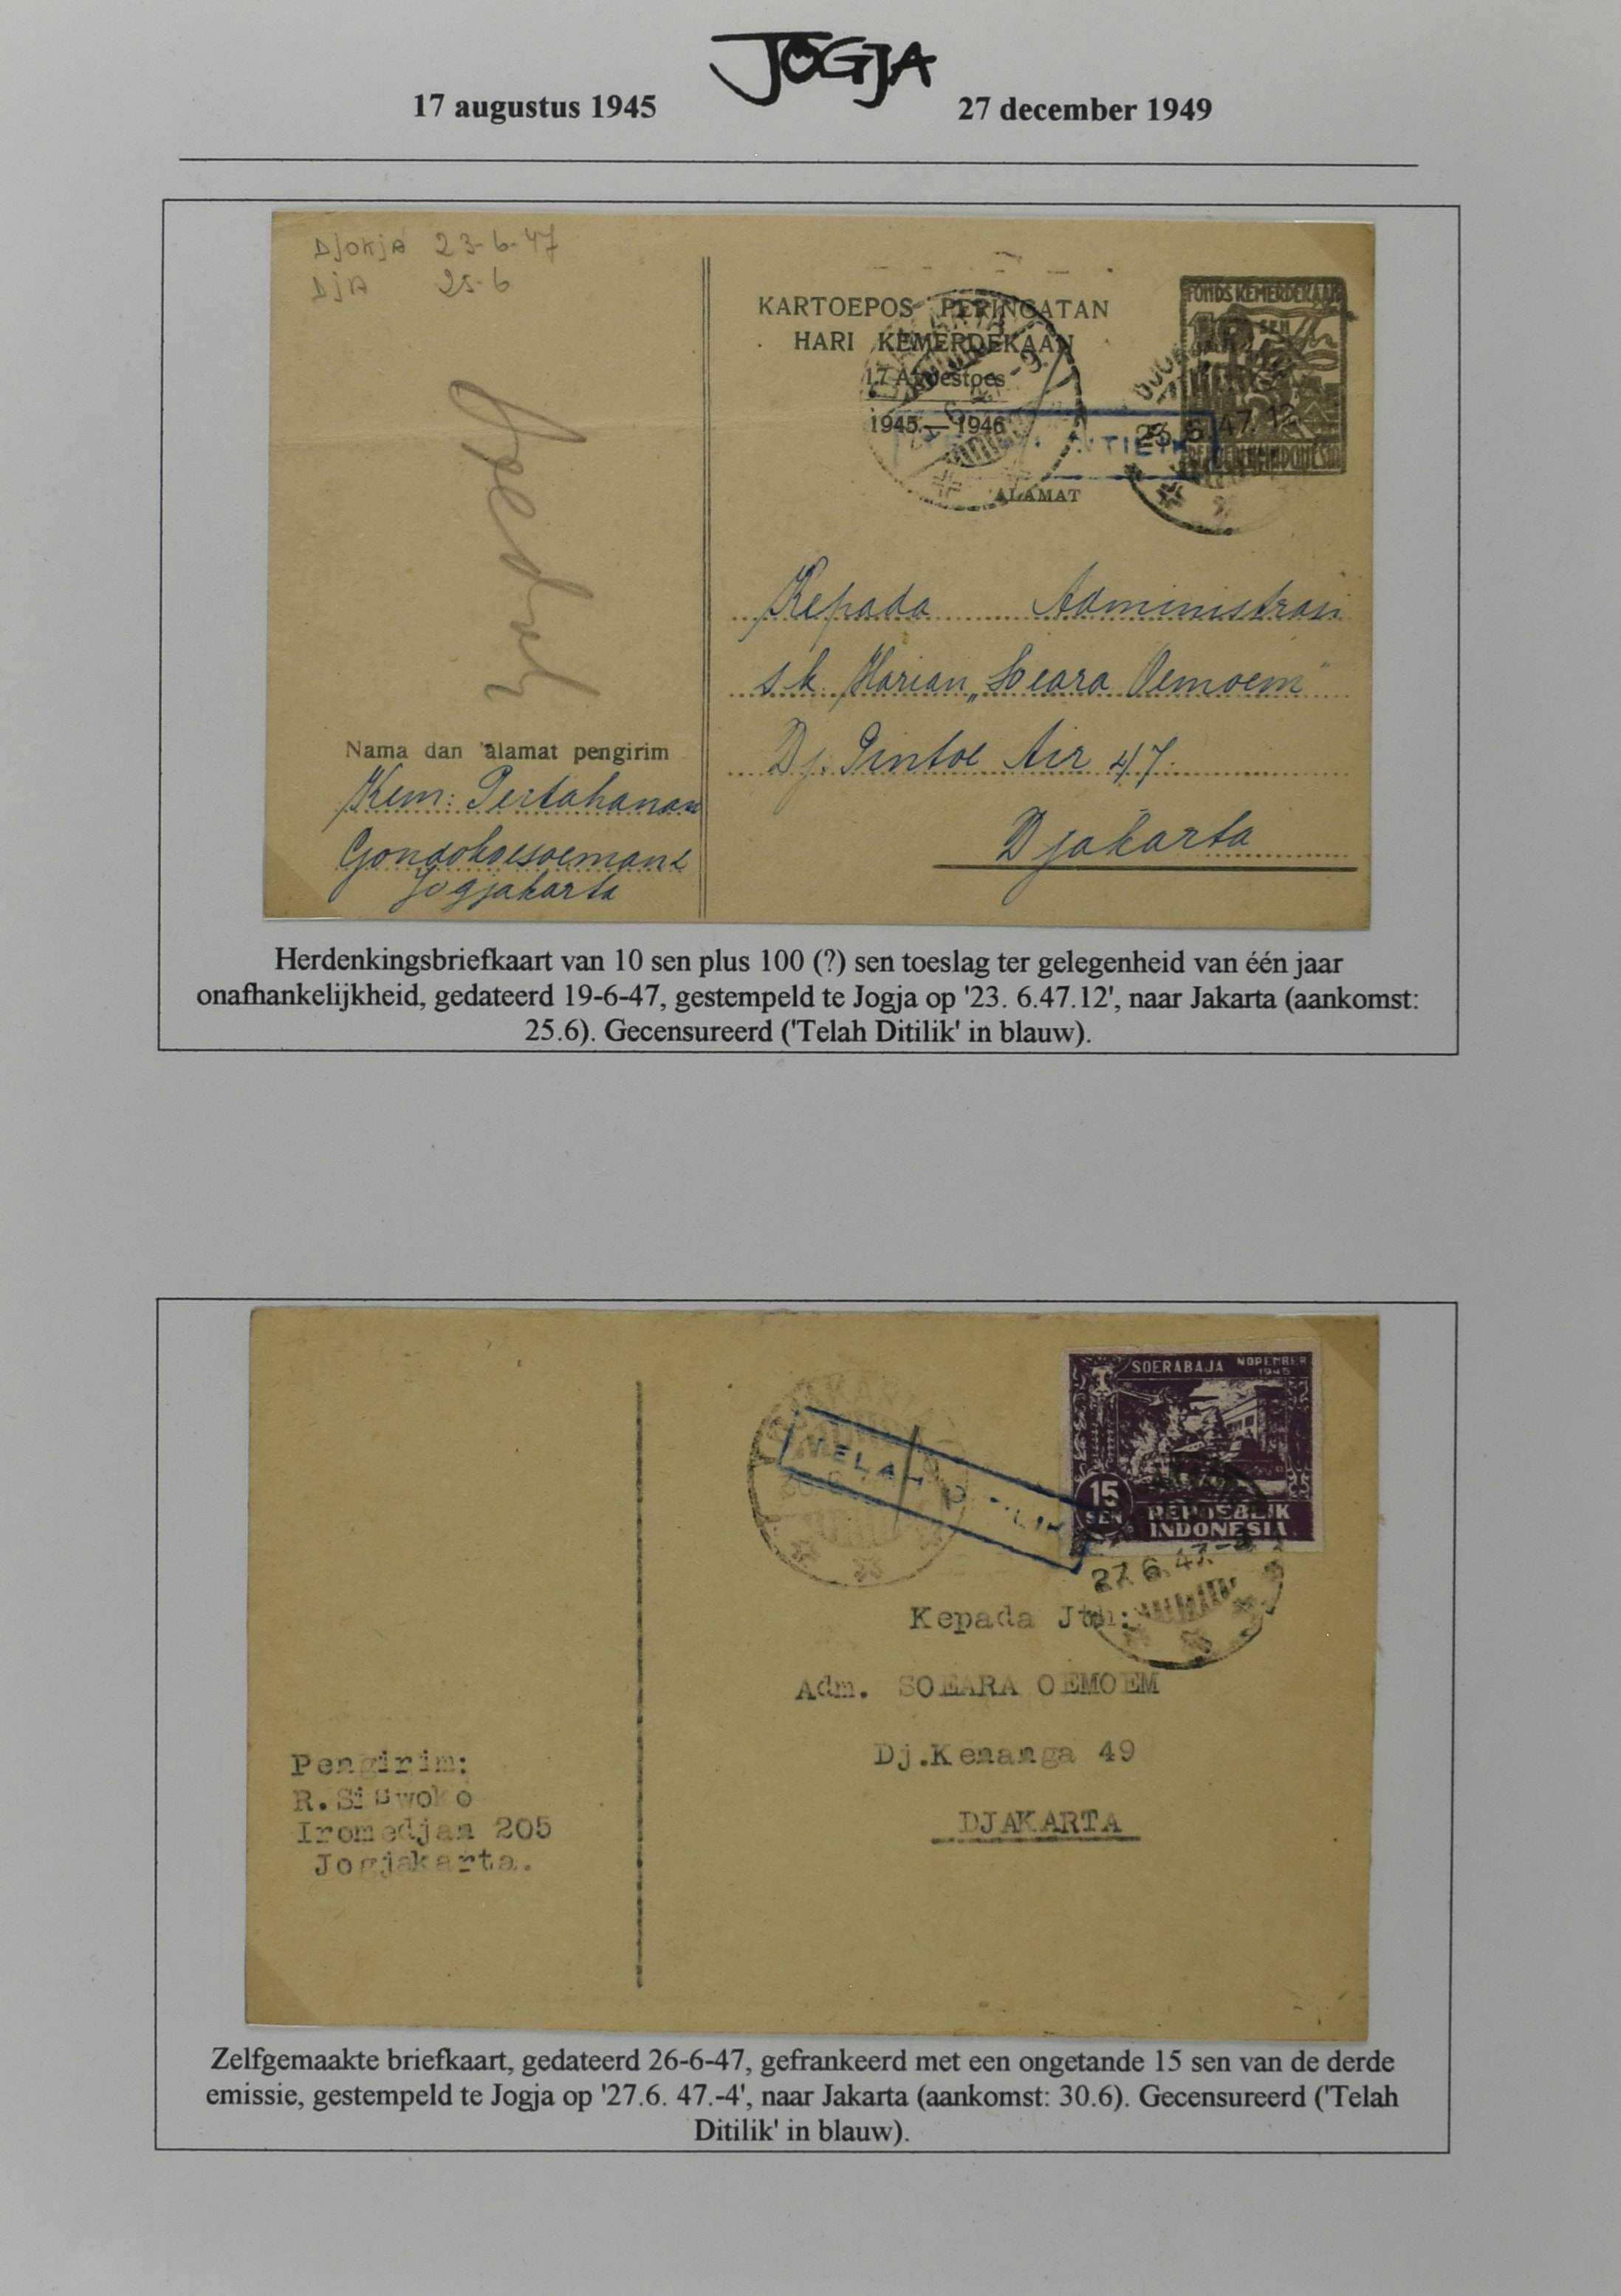 JOGJA
17 augustus 1945
27 december 1949
Djokja 23-6-47
DjA 25-6
KARTOEPOS PERINGATAN
HARI KEMERDEKAAN
17 Agoestoes
1945 — 1946
ALAMAT
FONDS KEMERDEKAAN
10 SEN
23. 6.47.12
DITILIK
Kepada Administrasi
s.k. Harian „Soeara Oemoem"
Dj. Pintoe Air 47.
Djakarta
Nama dan alamat pengirim
Kem: Pertahanan
Gondokoesoeman
Jogjakarta
Herdenkingsbriefkaart van 10 sen plus 100 (?) sen toeslag ter gelegenheid van één jaar
onafhankelijkheid, gedateerd 19-6-47, gestempeld te Jogja op '23. 6.47.12', naar Jakarta (aankomst:
25.6). Gecensureerd ('Telah Ditilik' in blauw).
SOERABAJA NOPEMBER
1945
15
SEN
REPOEBLIK
INDONESIA
TELAH DITILIK
27.6.47.-4
Kepada Jth:
Adm. SOEARA OEMOEM
Dj.Kenanga 49
DJAKARTA
Pengirim:
R.Siswoko
Iromedjan 205
Jogjakarta.
Zelfgemaakte briefkaart, gedateerd 26-6-47, gefrankeerd met een ongetande 15 sen van de derde
emissie, gestempeld te Jogja op '27.6. 47.-4', naar Jakarta (aankomst: 30.6). Gecensureerd ('Telah
Ditilik' in blauw).